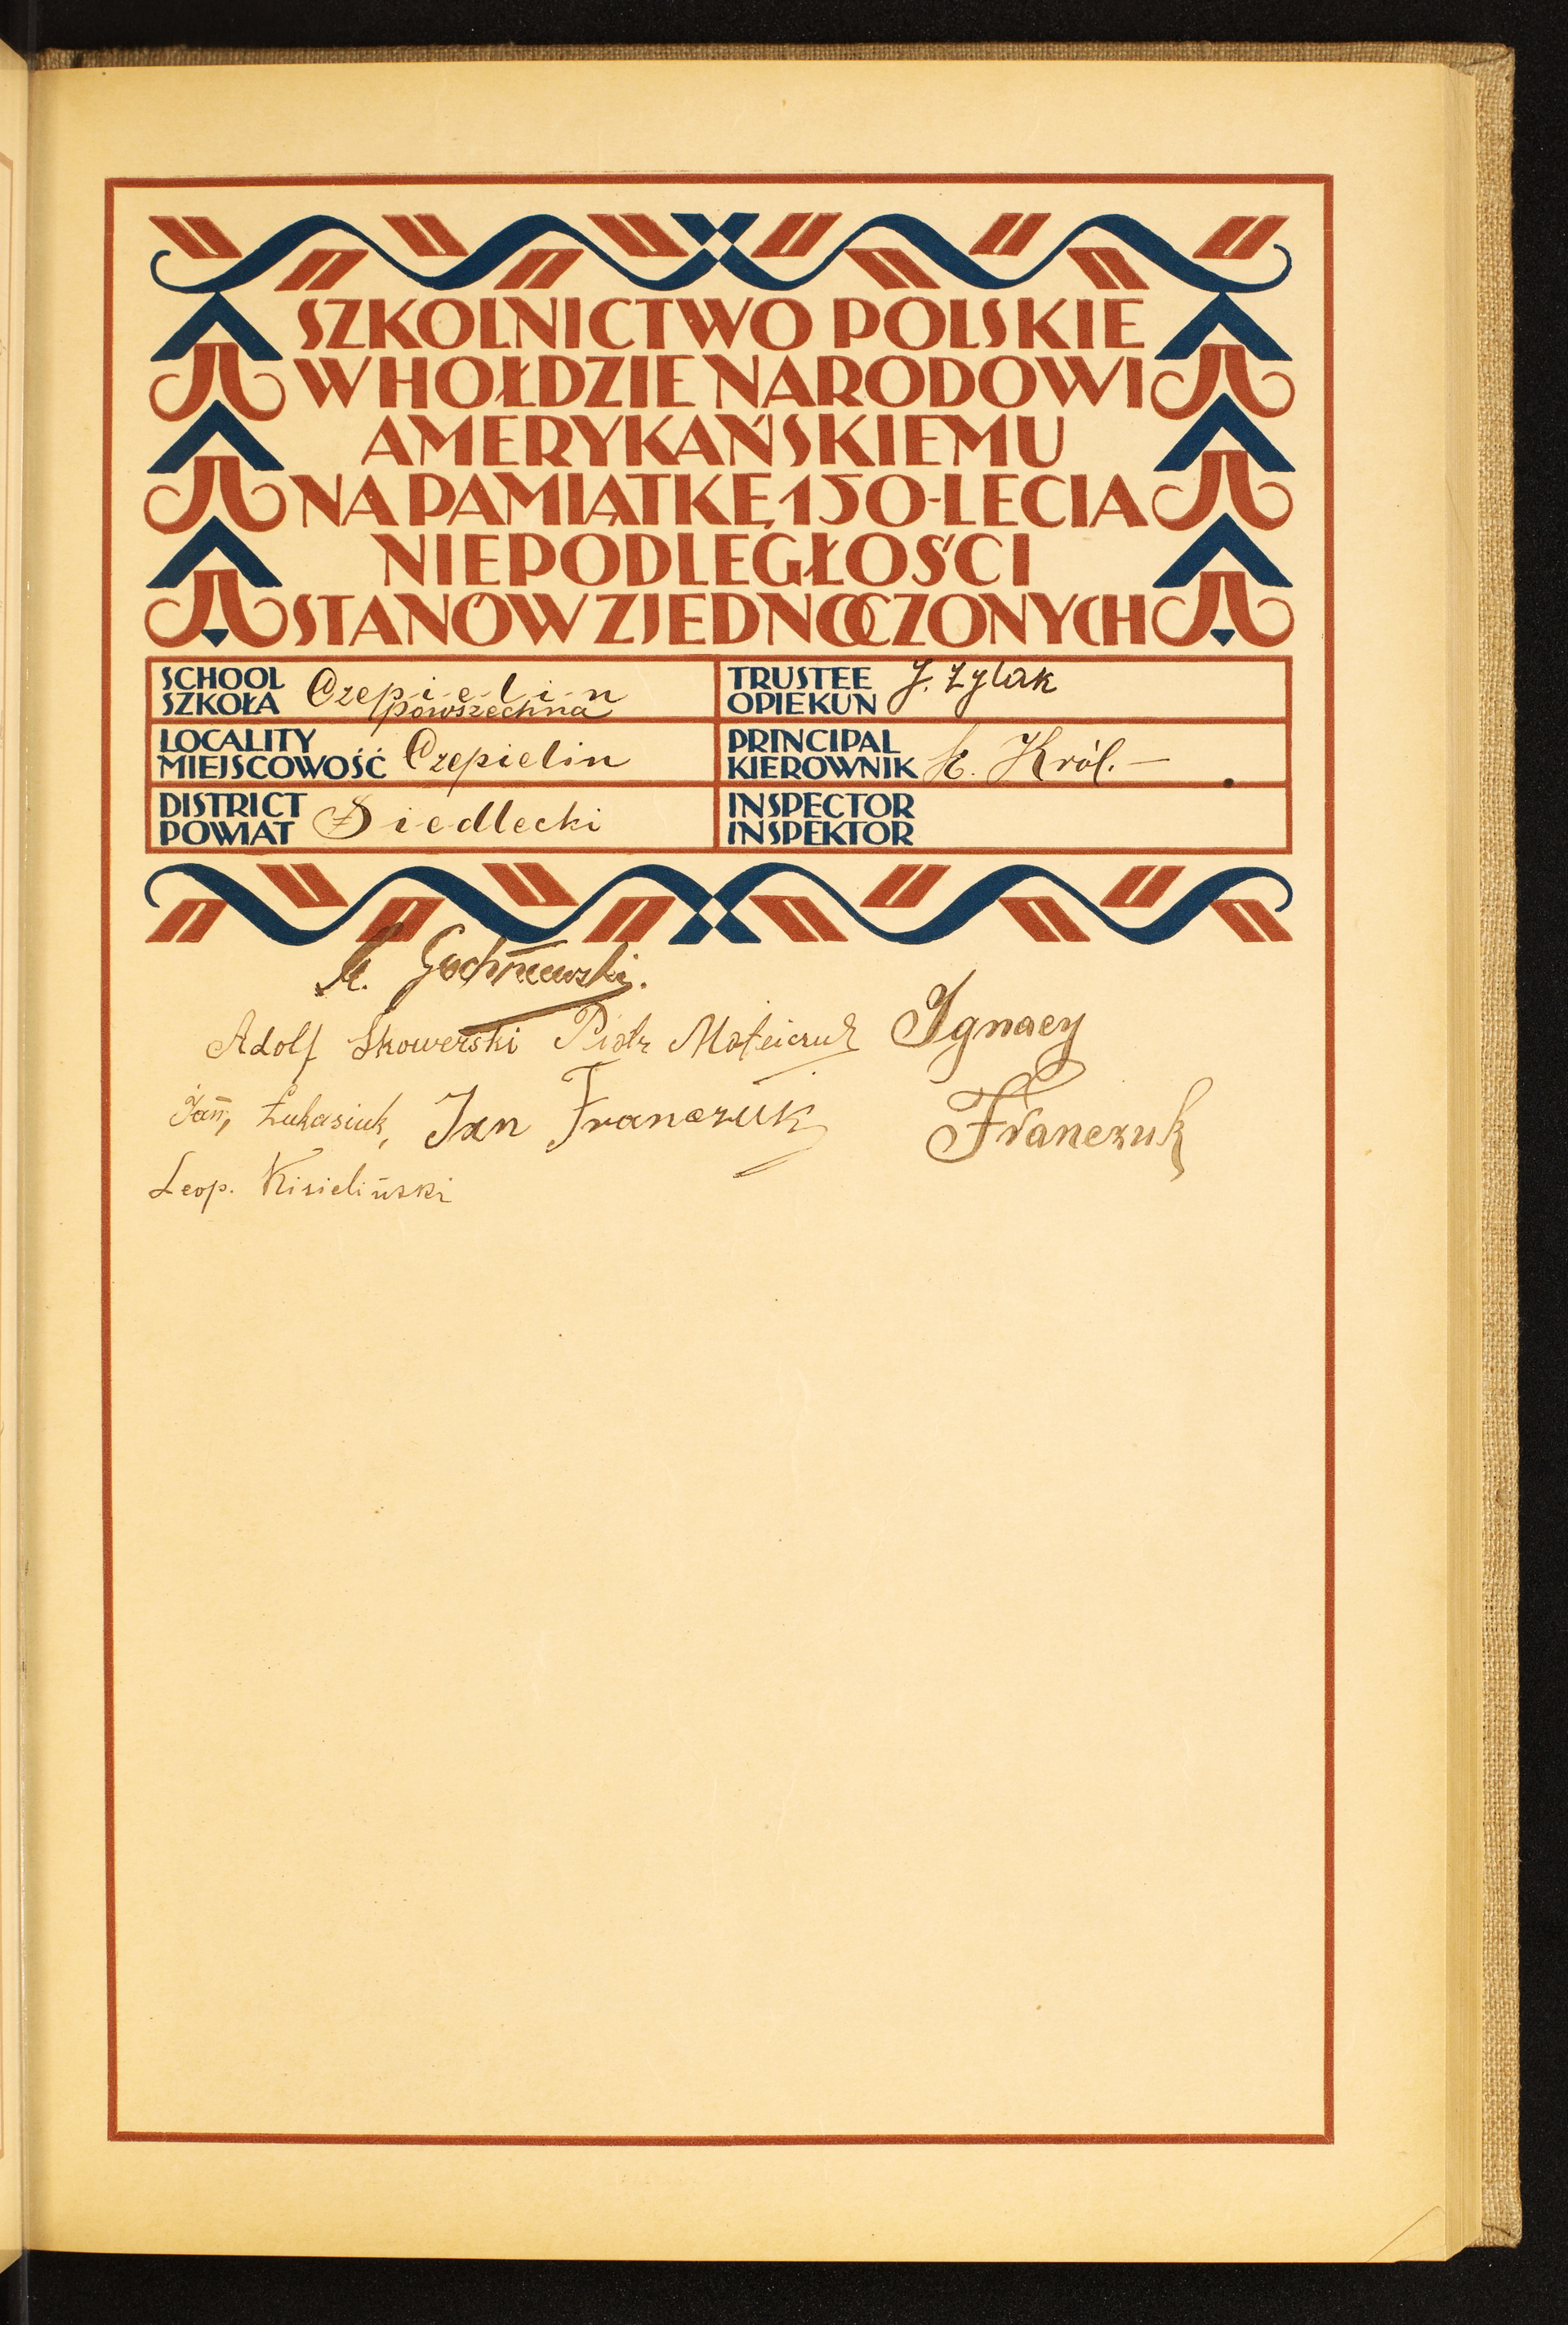 SZKOLNICTWO POLSKIE
W HOŁDZIE NARODOWI
AMERYKAŃSKIEMU
NA PAMIĄTKĘ 150-LECIA
NIEPODLEGŁOŚCI
STANÓW ZJEDNOCZONYCH
SCHOOL
SZKOŁA Czepielin
powszechna
TRUSTEE
OPIEKUN J. Zylak
LOCALITY
MIEJSCOWOŚĆ Czepielin
PRINCIPAL
KIEROWNIK St. Król.
DISTRICT
POWIAT Siedlecki
INSPECTOR
INSPEKTOR
Adolf Skowerski Piotr Matejczuk Ignacy
Jan, Łukasiuk, Jan Franczuk Franczuk
Leop. Kisieliński